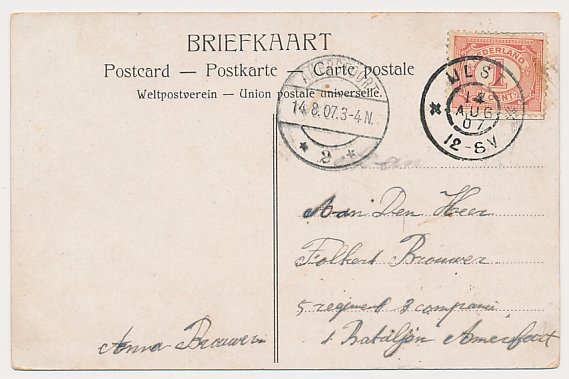 BRIEFKAART
Postcard — Postkarte — Carte postale
Weltpostverein — Union postale universelle.
AMERSFOORT
14.8.07.3-4N.
* 2 *
NEDERLAND
1
ULST
14
AUG
07
12-8V
Aan Den Heer
Folkert Brouwer
5 regiment 3 companie
1 Bataljon Amersfoort
Anna Brouwer